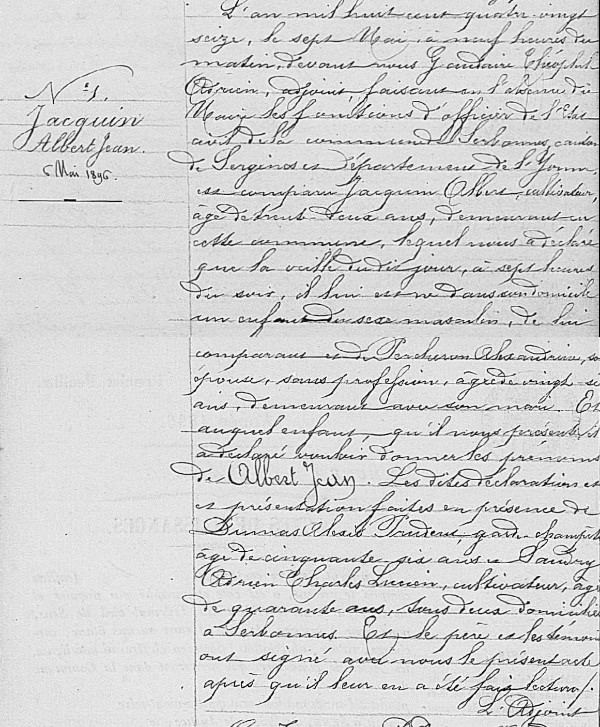 L'an mil huit cent quatre vingt
seize, le sept Mai, à neuf heures du
matin, devant nous Gaudaire Théophile
Adrien, adjoint, faisant en l'absence du
Maire les fonctions d'officier de l'Etat
civil de la commune de Serbonnes, canton
de Sergines et Département de l'Yonne,
est comparu Jacquin Albert, cultivateur,
âgé de trente deux ans, demeurant en
cette commune, lequel nous a déclaré
que la veille dudit jour, à sept heures
du soir, il lui est né dans son domicile
un enfant du sexe masculin, de lui
N° 5.
Jacquin
Albert Jean.
6 Mai 1896.
comparant et de Percheron Alexandrine, son
épouse, sans profession, âgée de vingt
ans, demeurant avec son mari. Et
auquel enfant, qu'il nous présente, il
a déclaré vouloir donner les prénoms
de Albert Jean. Les dites déclaration et
et présentation faites en présence de
Dumas Alexis Prudent, garde-champêtre
âgé de cinquante six ans et
Adrien Charles Lucien, cultivateur, âgé
de quarante ans, tous deux domiciliés
à Serbonnes. Et le père et les témoins
ont signé avec nous le présent acte
après qu'il leur en a été fait lecture.
L'Adjoint